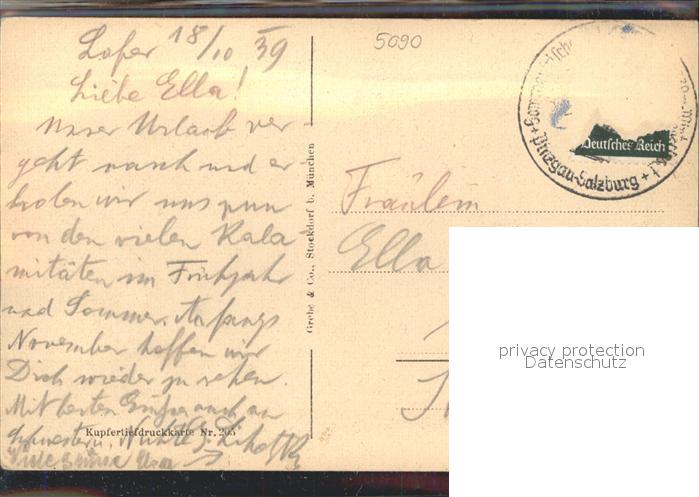 Lofer 18/10 39
Liebe Ella!
Unser Urlaub ver-
geht rasch und er
holen wir uns nun
von den vielen Kala-
mitäten im Frühjahr
und Sommer. Anfangs
November hoffen wir
Dich wieder zu sehen.
Mit besten Grüßen auch an
Schwestern,
Viele Grüsse
Kupfertiefdruckkarte Nr. 205
Grebe & Co., Stockdorf b. München
5090
Deutsches Reich
Pinzgau-Salzburg
Fräulein
Ella
privacy protection
Datenschutz